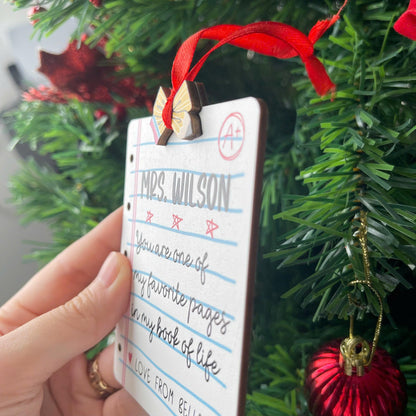 A+
MRS. WILSON
You are one of
my favorite pages
in my book of life
LOVE FROM BELLA